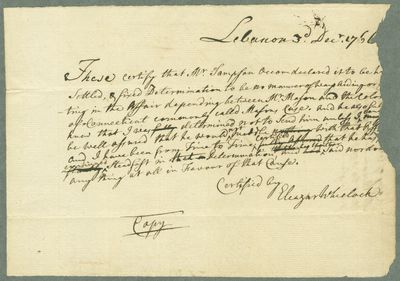 Lebanon 3d. Decr. 176
These certify that Mr. Sampson Occom declared it to be h
Settled, & fixed Determination to be no manner of
ting in the Affair depending between Mr. Mason and the Colo
of Connecticut commonly called Masons Case. and he also
knew that I was fully determined not to send him unless I
be well assured that he would not be with that Aff
and I have been from Time to Time assured that he
Steadfast in that Determination and said nor don
any thing at all in Favour of that Cause.
Certified by
Eleazar Wheelock
Copy